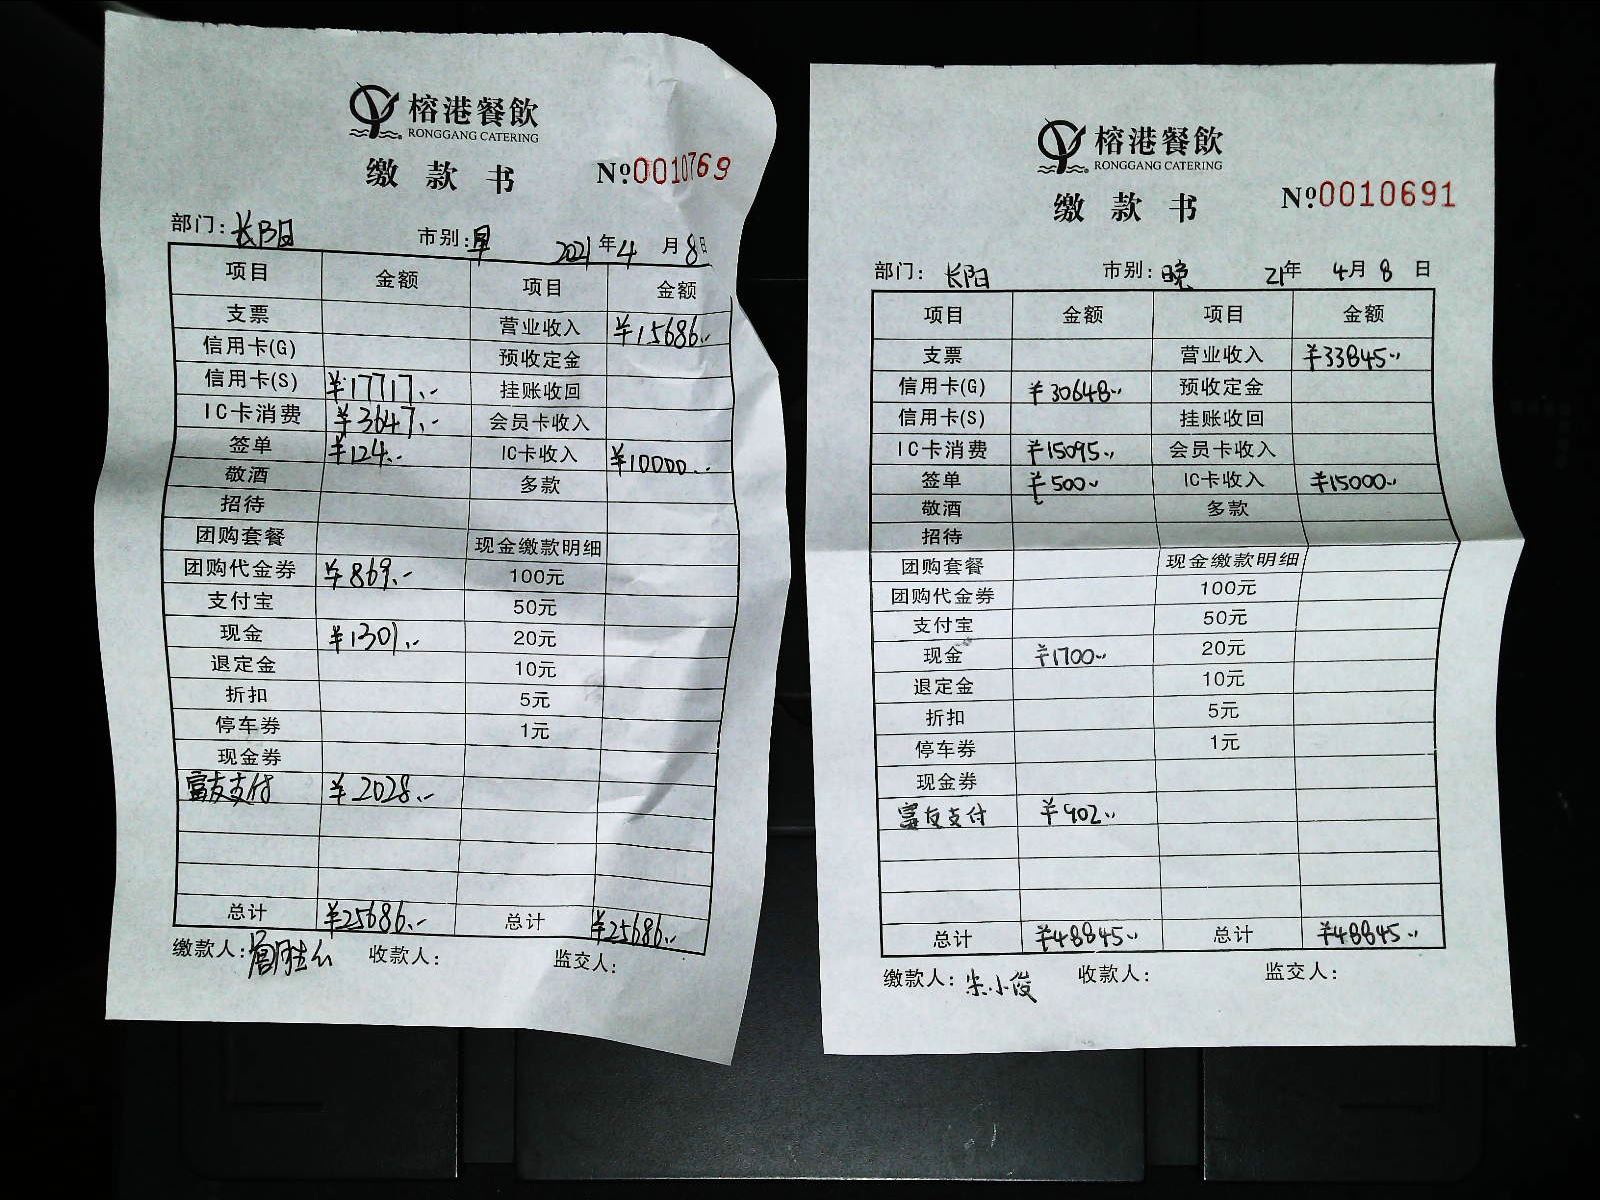 榕港餐飲
RONGGANG CATERING
缴款书
№0010769
部门：长阳 市别：早 2021年4月8日
项目 金额 项目 金额
支票 营业收入 ¥15686.-
信用卡(G) 预收定金
信用卡(S) ¥17717.- 挂账收回
IC卡消费 ¥3647.- 会员卡收入
签单 ¥124.- IC卡收入 ¥10000.-
敬酒 多款
招待
团购套餐 现金缴款明细
团购代金券 ¥869.- 100元
支付宝 50元
现金 ¥1301.- 20元
退定金 10元
折扣 5元
停车券 1元
现金券
富友支付 ¥2028.-
总计 ¥25686.- 总计 ¥25686.-
缴款人： 收款人： 监交人：
榕港餐飲
RONGGANG CATERING
缴款书
№0010691
部门：长阳 市别：晚 21年4月8日
项目 金额 项目 金额
支票 营业收入 ¥33845.-
信用卡(G) ¥30648.- 预收定金
信用卡(S) 挂账收回
IC卡消费 ¥15095.- 会员卡收入
签单 ¥500.- IC卡收入 ¥15000.-
敬酒 多款
招待
团购套餐 现金缴款明细
团购代金券 100元
支付宝 50元
现金 ¥1700.- 20元
退定金 10元
折扣 5元
停车券 1元
现金券
富友支付 ¥902.-
总计 ¥48845.- 总计 ¥48845.-
缴款人：宋小俊 收款人： 监交人：